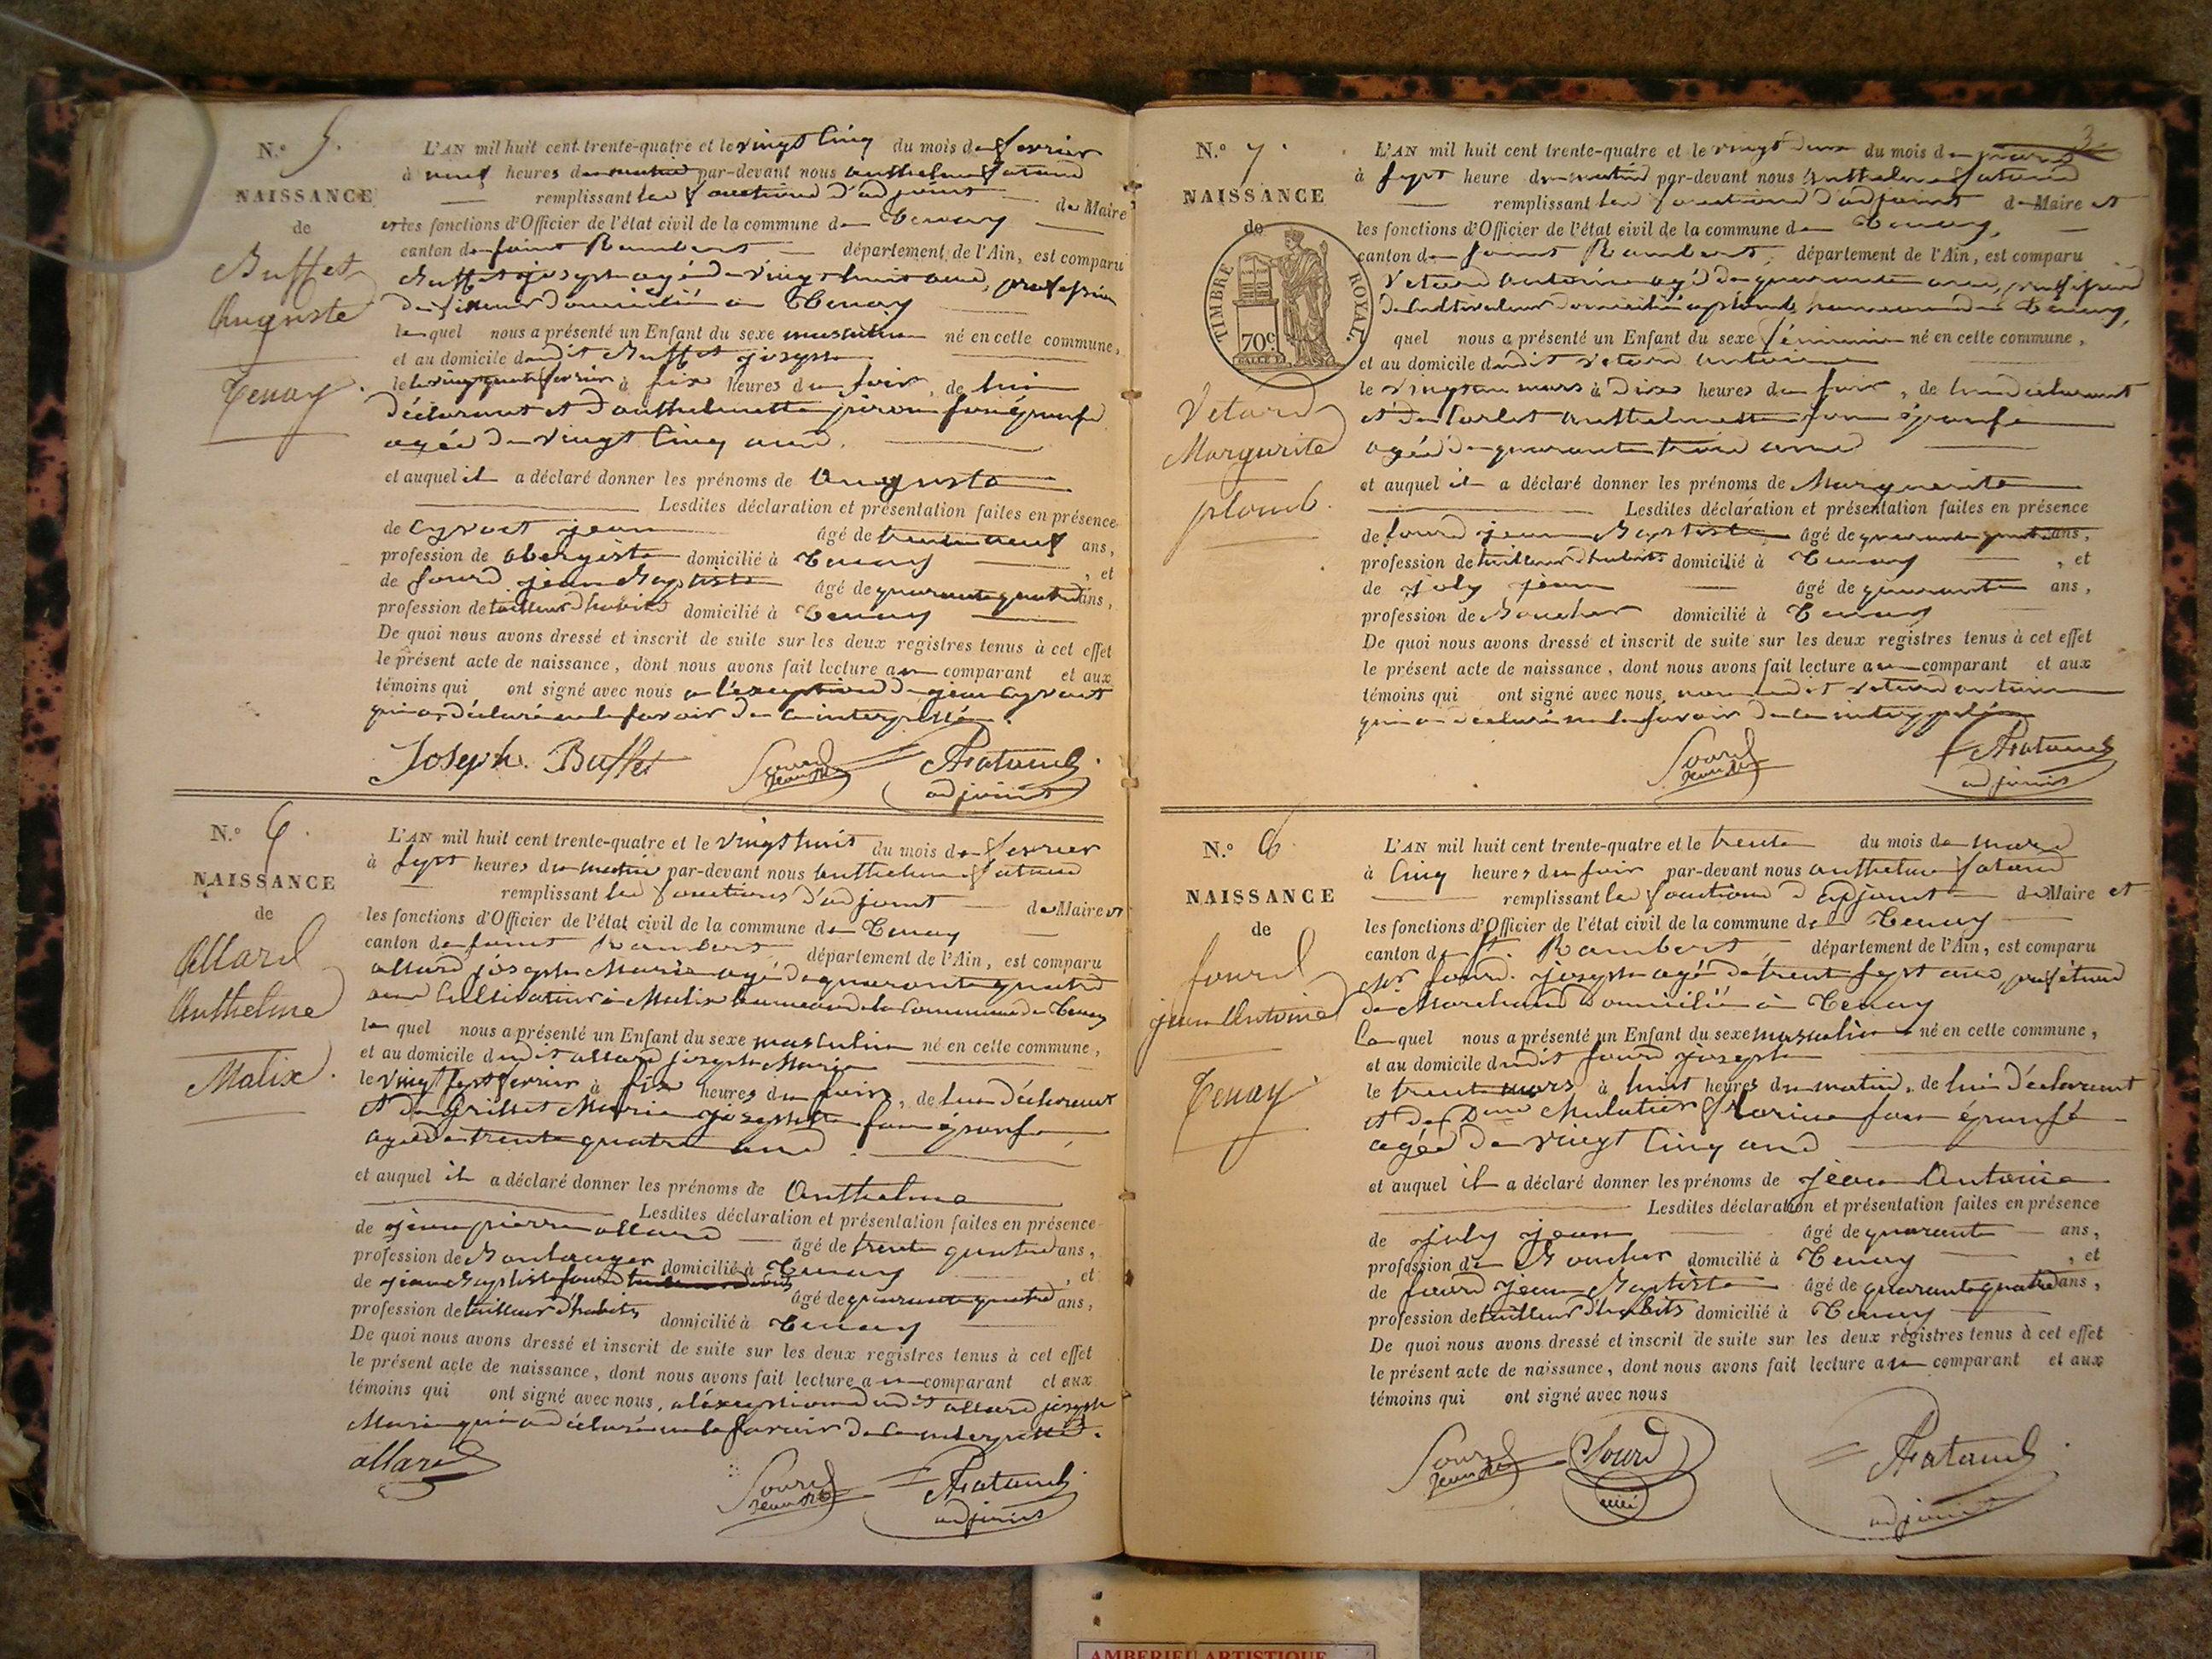 N.o 5.
NAISSANCE
de
Buffet
Auguste
Tenay
L'AN mil huit cent trente-quatre et le vingt cinq du mois de fevrier
à neuf heures du matin par-devant nous anthelme fatand
remplissant les fonctions d'adjoint de Maire
et les fonctions d'Officier de l'état civil de la commune de Tenay
canton de saint Rambert département de l'Ain, est comparu
Buffet joseph agé de vingt huit ans, profession
domicilié a Tenay
le quel nous a présenté un Enfant du sexe masculin né en cette commune,
et au domicile dudit Buffet joseph
le vingt quatre fevrier à six heures du soir, de lui
déclarant et d'anthelmette son épouse
agée de vingt cinq ans.
et auquel il a déclaré donner les prénoms de Auguste
Lesdites déclaration et présentation faites en présence
de Cyvoct jean âgé de trente neuf ans,
profession de abergiste domicilié à Tenay , et
de sourd jean Baptiste âgé de quarante quatre ans,
profession de tailleur d'habits domicilié à Tenay
De quoi nous avons dressé et inscrit de suite sur les deux registres tenus à cet effet
le présent acte de naissance, dont nous avons fait lecture au comparant et aux
témoins qui ont signé avec nous a l'exception de jean Cyvoct
qui a déclaré ne le savoir de ce interpellé.
Joseph Buffet
Sourd
jean Bte
AFatand
adjoint
N.o 6.
NAISSANCE
de
Allard
Anthelme
Malix.
L'AN mil huit cent trente-quatre et le vingt huit du mois de fevrier
à sept heures du matin par-devant nous anthelme fatand
remplissant les fonctions d'adjoint de Maire et
les fonctions d'Officier de l'état civil de la commune de Tenay
canton de saint Rambert département de l'Ain, est comparu
allard joseph Marie agé de quarante quatre
ans Cultivateur à Malix hameau de la Commune de Tenay
le quel nous a présenté un Enfant du sexe masculin né en cette commune,
et au domicile dudit allard joseph Marie
le vingt sept fevrier à six heures du soir, de lui déclarant
et de Grillet Marie josephte son épouse
agée de trente quatre ans
et auquel il a déclaré donner les prénoms de Anthelme
Lesdites déclaration et présentation faites en présence
de jean pierre allard âgé de trente quatre ans,
profession de Boulanger domicilié à Tenay , et
de jean Baptiste sourd âgé de quarante quatre ans,
profession de tailleur d'habits domicilié à Tenay
De quoi nous avons dressé et inscrit de suite sur les deux registres tenus à cet effet
le présent acte de naissance, dont nous avons fait lecture au comparant et aux
témoins qui ont signé avec nous, a l'exception dudit allard joseph
Marie qui a déclaré ne le savoir de ce interpellé.
allard
Sourd
jean Bte
AFatand
adjoint
3
N.o 7.
NAISSANCE
de
TIMBRE ROYAL.
70c
Vetard
Marguerite
plomb.
L'AN mil huit cent trente-quatre et le vingt deux du mois de mars
à sept heure du matin par-devant nous anthelme fatand
remplissant les fonctions d'adjoint de Maire et
les fonctions d'Officier de l'état civil de la commune de Tenay,
canton de saint Rambert, département de l'Ain, est comparu
Vetard antoine agé de quarante ans, profession
de Cultivateur domicilié a plomb, hameau de Tenay,
quel nous a présenté un Enfant du sexe féminin né en cette commune,
et au domicile dudit vetard antoine
le vingt un mars à dix heures du soir, de lui declarant
et de Carlet anthelmette son épouse
agée de quarante trois ans
et auquel il a déclaré donner les prénoms de Marguerite
Lesdites déclaration et présentation faites en présence
de sourd jean Baptiste âgé de quarante quatre ans,
profession de tailleur d'habits domicilié à Tenay , et
de joly jean âgé de quarante ans,
profession de Boucher domicilié à Tenay
De quoi nous avons dressé et inscrit de suite sur les deux registres tenus à cet effet
le présent acte de naissance, dont nous avons fait lecture au comparant et aux
témoins qui ont signé avec nous, non ledit vetard antoine
qui a déclaré ne le savoir de ce interpellé
Sourd
jean Bte
AFatand
adjoint
N.o 8.
NAISSANCE
de
sourd
jean Antoine
Tenay
L'AN mil huit cent trente-quatre et le trente du mois de mars
à Cinq heures du soir par-devant nous anthelme fatand
remplissant les fonctions d'adjoint de Maire et
les fonctions d'Officier de l'état civil de la commune de Tenay
canton de St. Rambert, département de l'Ain, est comparu
Mr sourd joseph agé de trente sept ans, profession
de Marchand domicilié à Tenay
Le quel nous a présenté un Enfant du sexe masculin né en cette commune,
et au domicile dudit sourd joseph
le trente mars à huit heures du matin, de lui déclarant
et de Dame Mulatier florine son épouse
agée de vingt cinq ans
et auquel il a déclaré donner les prénoms de jean Antoine
Lesdites déclaration et présentation faites en présence
de joly jean âgé de quarante ans,
profession de Boucher domicilié à Tenay , et
de sourd jean Baptiste âgé de quarante quatre ans,
profession de tailleur d'habits domicilié à Tenay
De quoi nous avons dressé et inscrit de suite sur les deux registres tenus à cet effet
le présent acte de naissance, dont nous avons fait lecture au comparant et aux
témoins qui ont signé avec nous
Sourd
jean Bte
Sourd
AFatand
adjoint
AMBERIEU ARTISTIQUE